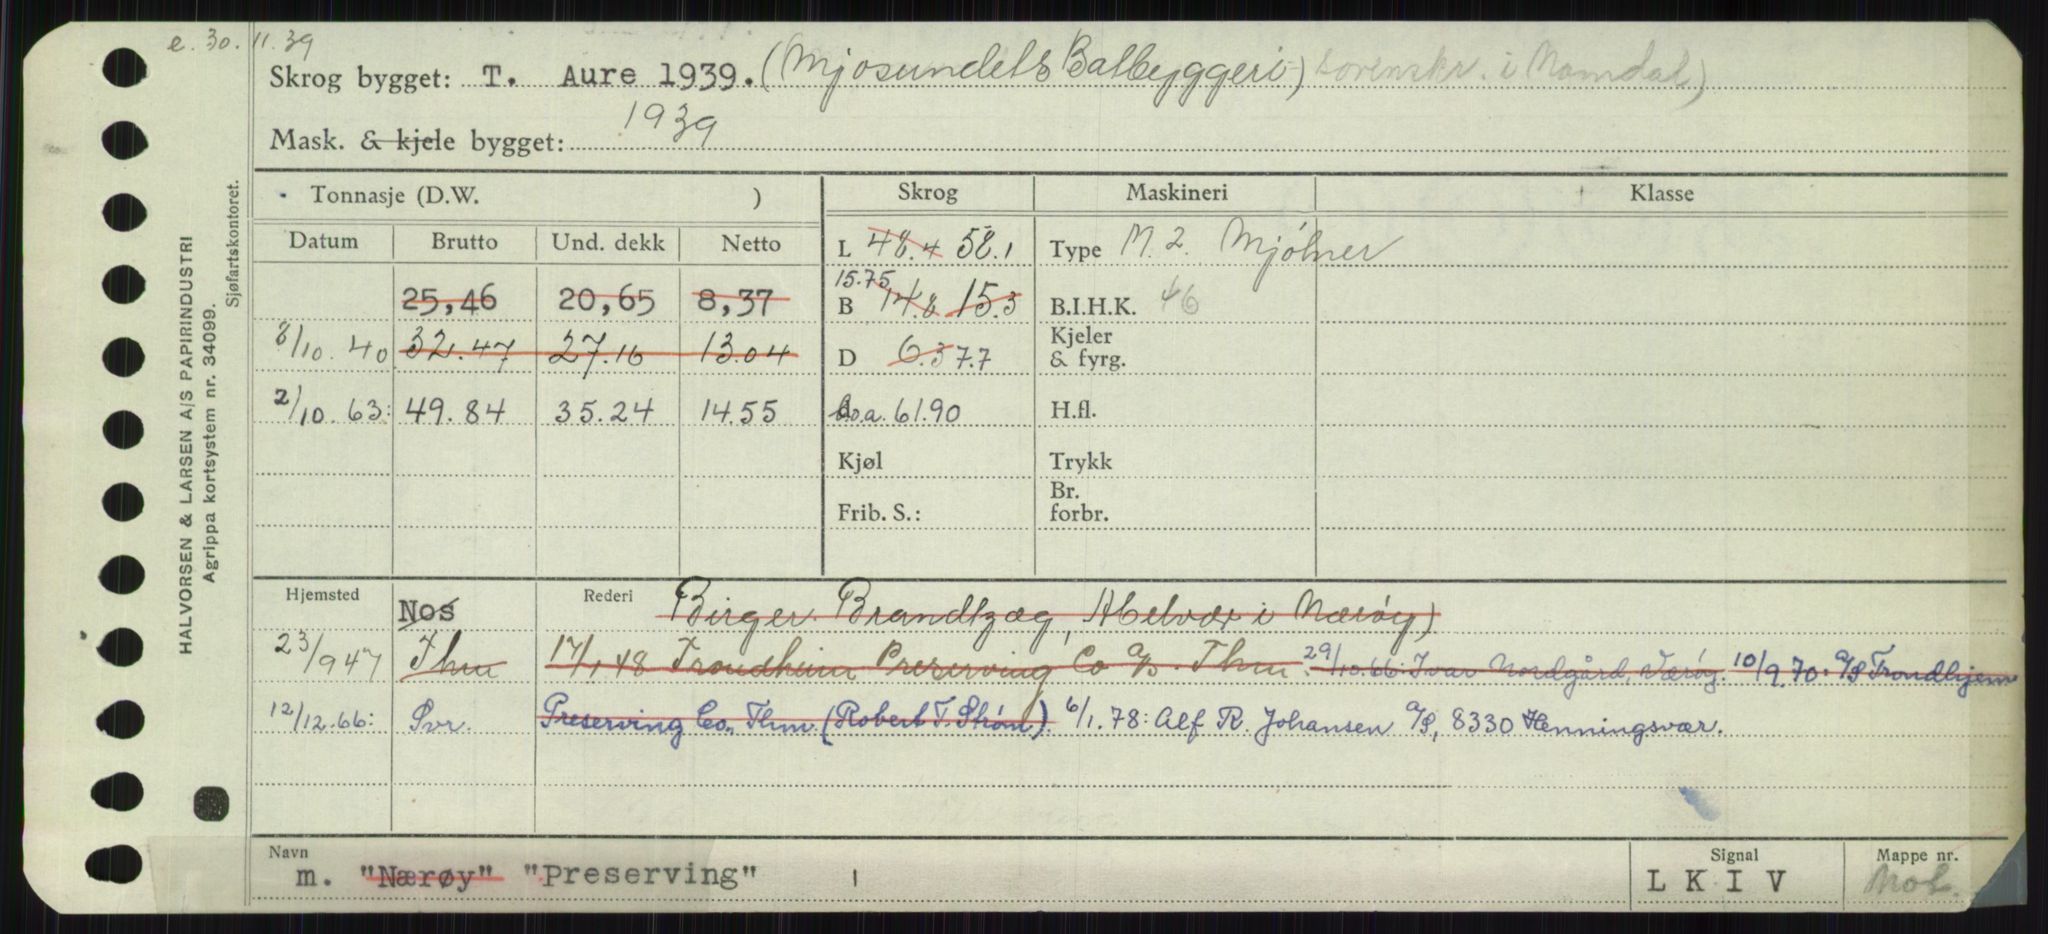 e. 30. 11. 39
Skrog bygget: T. Aure 1939. (Mjosundets Båtbyggeri) i Namdal)
Mask. & kjele bygget: 1939
Tonnasje (D.W. ) Skrog Maskineri Klasse
Datum Brutto Und. dekk Netto L 48.4 58.1 Type M. 2. Mjølner
25,46 20,65 8,37 15.75 B 14.8 15.3 B.I.H.K. 46
8/10. 40 32.47 27.16 13.04 D 6.3 7.7 Kjeler & fyrg.
2/10. 63: 49.84 35.24 14.55 l.o.a. 61.90 H.fl.
Kjøl Trykk
Frib. S.: Br. forbr.
Hjemsted Nos Rederi Birger Brandtzæg, Abelvær i Nærøy)
23/9 47 Thm 17/1 48 Trondhjem Preserving Co a/s. Thm. 29/10.66: Ivar Nordgård, Værøy. 10/9.70. A/S Trondhjem
12/12.66: Svr. Preserving Co., Thm. (Robert T. Strøm). 6/1.78: Alf R. Johansen A/S, 8330 Henningsvær.
Navn Signal Mappe nr.
m. "Nærøy" "Preserving" L K I V Mob.
HALVORSEN & LARSEN A/S PAPIRINDUSTRI
Agrippa kortsystem nr. 34099.
Sjøfartskontoret.